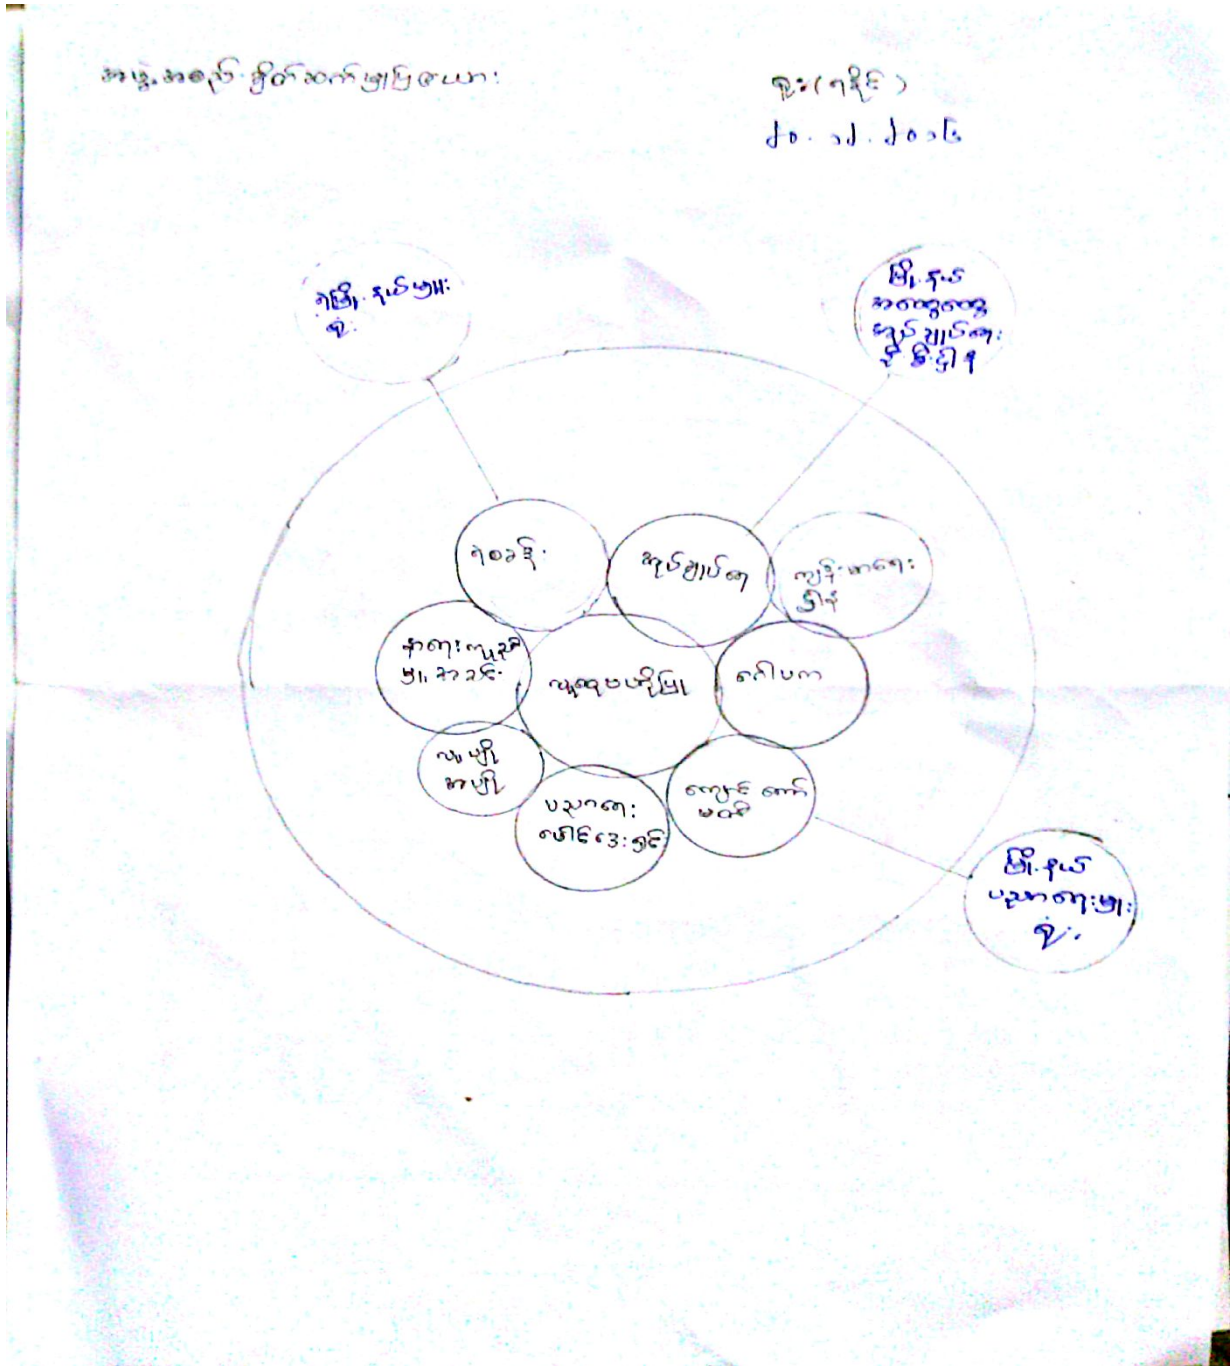 အဖွဲ့အစည်းချိတ်ဆက်မှုပြဇယား
ရှုး(ရခိုင်)
၂၀.၁၂.၂၀၁၆
ရဲမြို့နယ်မှူး
ရုံး
မြို့နယ်
အထွေထွေ
အုပ်ချုပ်ရေး
ဦးစီးဌာန
ရဲစခန်း
အုပ်ချုပ်ရေး
ကျန်းမာရေး
ဌာန
နာရေးကူညီ
မှု အသင်း
လူထုဗဟိုပြု
ဂေါပက
လူမျိုး
အမျိုး
ပညာရေး
ဖောင်ဒေးရှင်း
ကျောင်းကော်
မတီ
မြို့နယ်
ပညာရေးမှူး
ရုံး